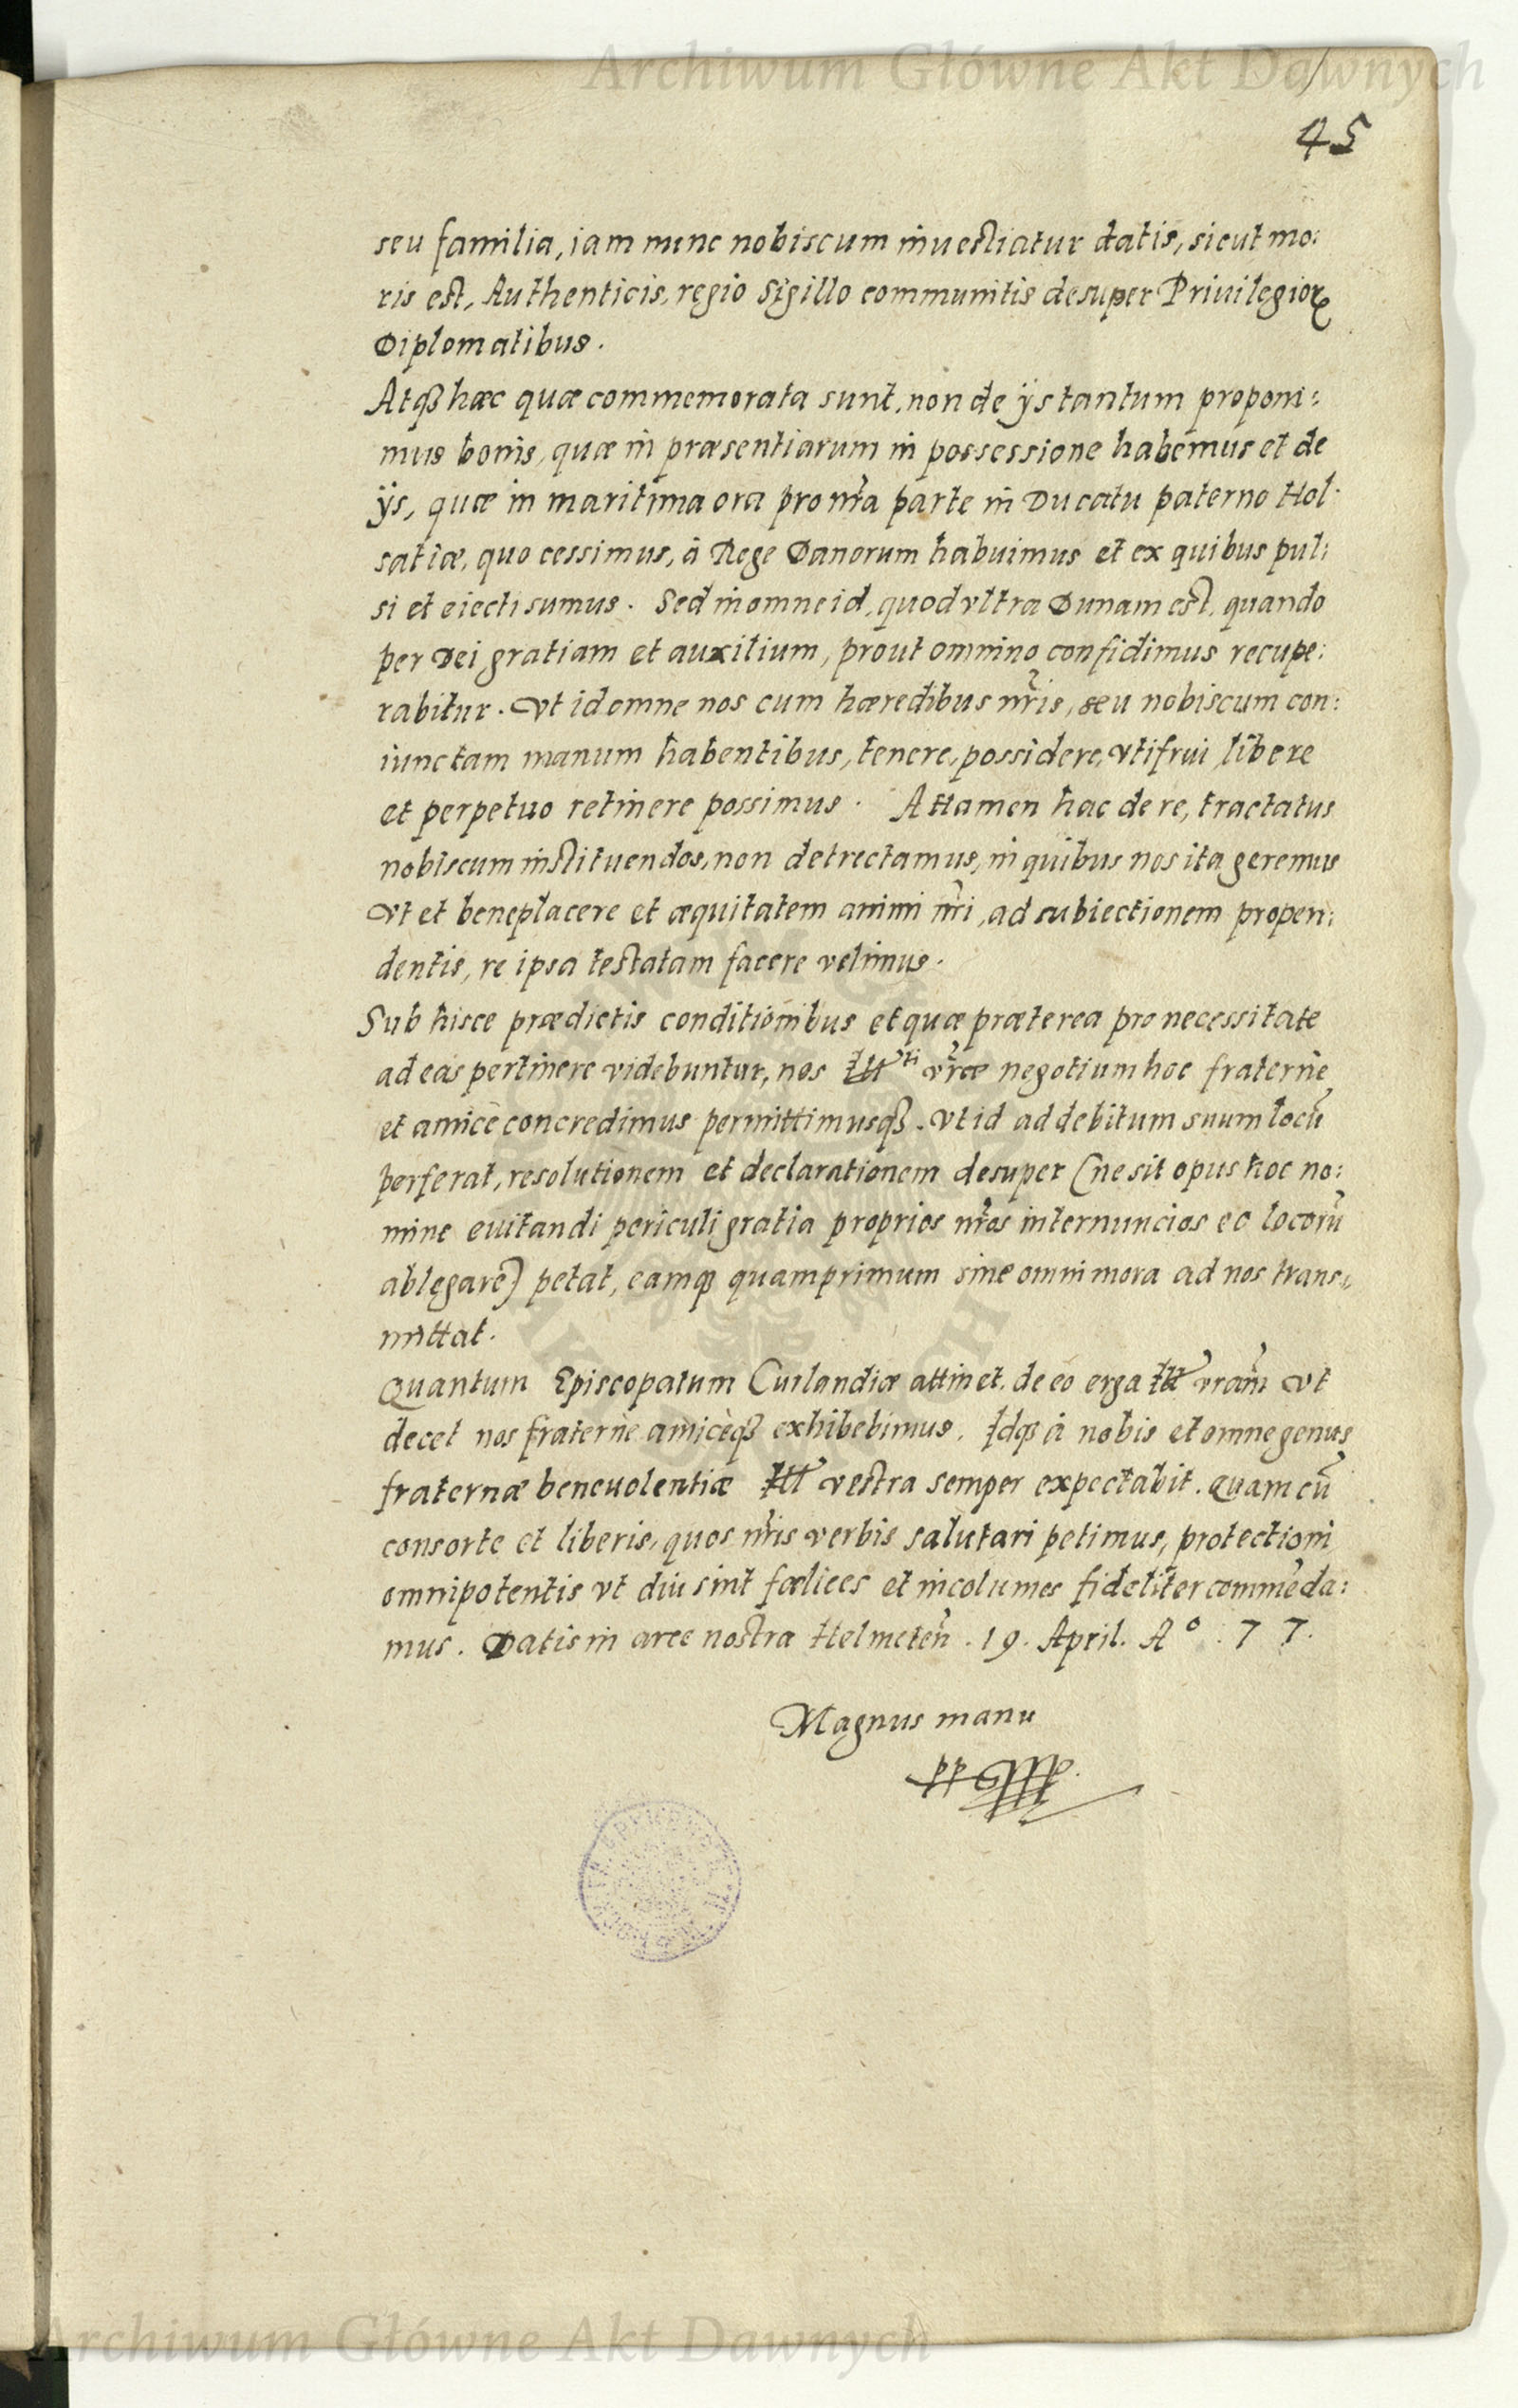 Archiwum Główne Akt Dawnych
45
seu familia, iam nunc nobiscum inuestiatur datis, sicut mo:
ris est, Authenticis, regio Sigillo communitis desuper Priuilegioꝝ
Diplomatibus.
Atqꝫ hæc quæ commemorata sunt, non de ijs tantum proponi:
mus bonis, quæ in præsentiarum in possessione habemus et de
ijs, quæ in maritima ora pro nr̃a parte in Ducatu paterno Hol:
satiæ, quo cessimus, à Rege Danorum habuimus et ex quibus pul:
si et eiecti sumus. Sed in omne id, quod vltra Dunam est, quando
per Dei gratiam et auxilium, prout omnino confidimus recupe:
rabitur. Vt id omne nos cum hæredibus nr̃is, seu nobiscum con:
iunctam manum habentibus, tenere, possidere, vtifrui libere
et perpetuo retinere possimus. Attamen hac de re, tractatus
nobiscum instituendos, non detrectamus, in quibus nos ita geremus
vt et beneplacere et æquitatem animi nr̃i, ad subiectionem propen:
dentis, re ipsa testatam facere velimus.
Sub hisce prædictis conditionibus et quæ præterea pro necessitate
ad eas pertinere videbuntur, nos Illᵗⁱ vr̃æ negotium hoc fraternè
et amicè concredimus permittimusqꝫ. Vt id ad debitum suum locũ
perferat, resolutionem et declarationem desuper (ne sit opus hoc no:
mine euitandi periculi gratia proprios nr̃os internuncios eo locorũ
ablegare) petat, eamqꝫ quamprimum sine omni mora ad nos trans:
mittat.
Quantum Episcopatum Curlandiæ attinet, de eo erga Ill vram̃ vt
decet nos fraternè amicèqꝫ exhibebimus. Idqꝫ à nobis et omne genus
fraternæ beneuolentiæ Ill vestra semper expectabit. Quam cũ
consorte et liberis, quos nr̃is verbis salutari petimus, protectioni
omnipotentis vt diu sint fœlices et incolumes fideliter commẽda:
mus. Datis in arce nostra Helmeteñ. 19. April. Aº. 77.
Magnus manu
Archiwum Główne Akt Dawnych